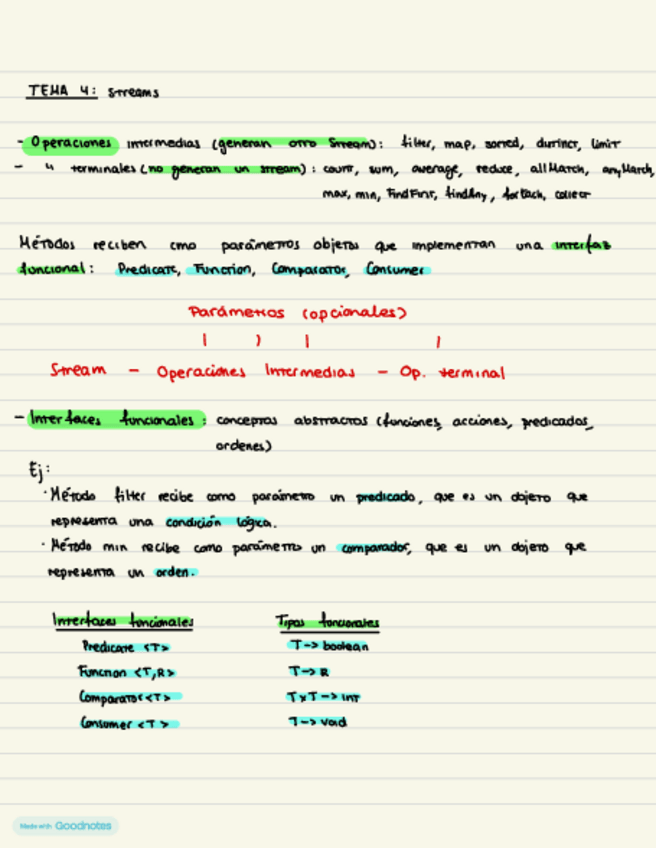 TEMA 4: Streams
- Operaciones intermedias (generan otro Stream): filter, map, sorted, distinct, limit
- " terminales (no generan un stream): count, sum, average, reduce, allMatch, anyMatch,
max, min, FindFirst, findAny, forEach, collect
Métodos reciben cmo parámetros objetos que implementan una interfaz
funcional: Predicate, Function, Comparator, Consumer
Parámetros (opcionales)
Stream - Operaciones Intermedias - Op. terminal
- Interfaces funcionales: conceptos abstractos (funciones, acciones, predicados,
ordenes)
Ej:
· Método filter recibe como parámetro un predicado, que es un objeto que
representa una condición lógica.
· Método min recibe como parámetro un comparador, que es un objeto que
representa un orden.
Interfaces funcionales Tipos funcionales
Predicate <T> T -> boolean
Function <T,R> T -> R
Comparator <T> T x T -> int
Consumer <T> T -> void
Made with Goodnotes